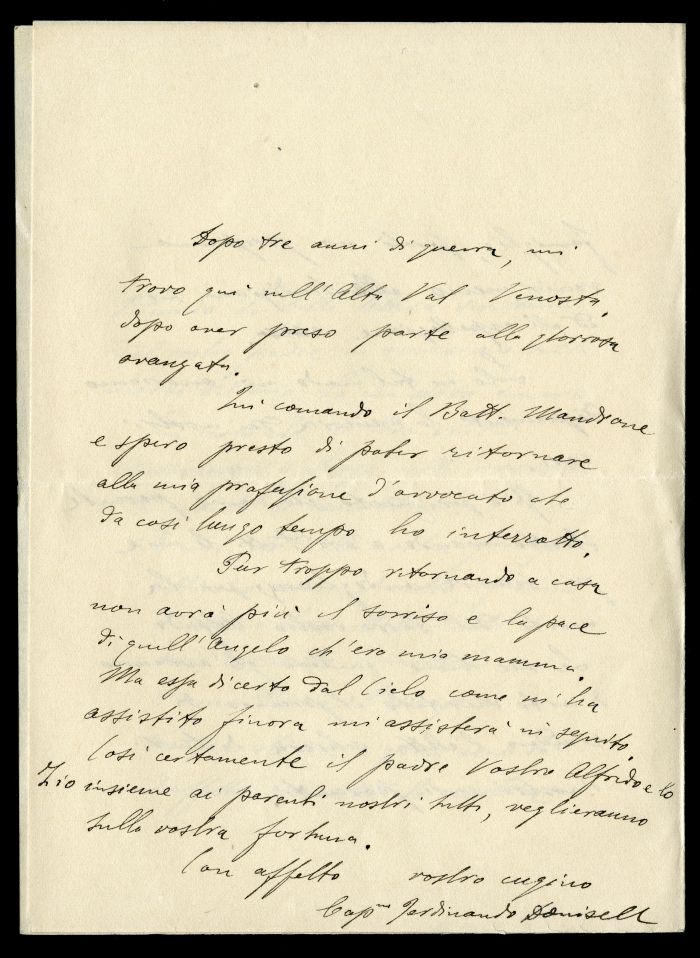 Dopo tre anni di guerra, mi
trovo quì nell'Alta Val Venosta,
dopo aver preso parte alla gloriosa
avanzata.
Qui comando il Batt. Mandrone
e spero presto di poter ritornare
alla mia professione d'avvocato che
da così lungo tempo ho interrotto.
Pur troppo ritornando a casa
non avrò più il sorriso e la pace
di quell'Angelo ch'era mia mamma.
Ma essa di certo dal Cielo come mi ha
assistito finora mi assisterà in seguito.
Così certamente il padre Vostro Alfrido e lo
Zio insieme ai parenti nostri tutti, veglieranno
sulla vostra fortuna.
Con affetto vostro cugino
Cap.no Ferdinando